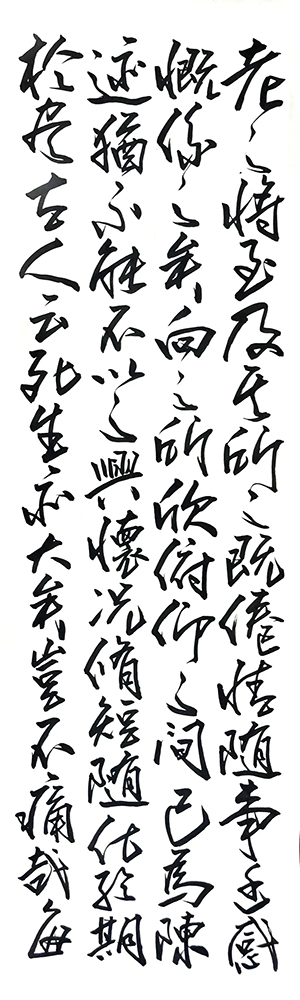 老之將至及其所之既倦情隨事遷感
慨係之矣向之所欣俯仰之間已為陳
迹猶不能不以之興懷況脩短隨化終期
於盡古人云死生亦大矣豈不痛哉每